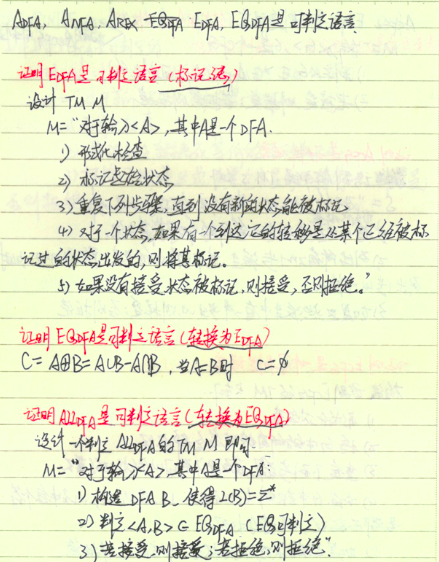 ADFA, ANFA, AREX EQDFA EDFA, EQDFA 是可判定语言.
证明EDFA是可判定语言(标记法)
设计 TM M
M="对于输入<A>,其中A是一个DFA.
1) 形式化检查
2) 标记起始状态
3) 重复下列步骤,直到没有新的状态能被标记.
4) 对于一个状态,如果有一个到达它的转移是从某个已经被标
记过的状态出发的,则将其标记.
5) 如果没有接受状态被标记,则接受,否则拒绝."
证明EQDFA是可判定语言(转换为EDFA)
C = A⊕B = A∪B - A∩B, 当A=B时 C=∅
证明ALLDFA是可判定语言(转换为EQDFA)
设计一个判定 ALLDFA的TM M 即可.
M="对于输入<A>,其中A是一个DFA.
1) 构造DFA B, 使得L(B)=Σ*
2) 判定<A,B>∈EQDFA (EQ可判定)
3) 若接受,则接受;若拒绝,则拒绝."